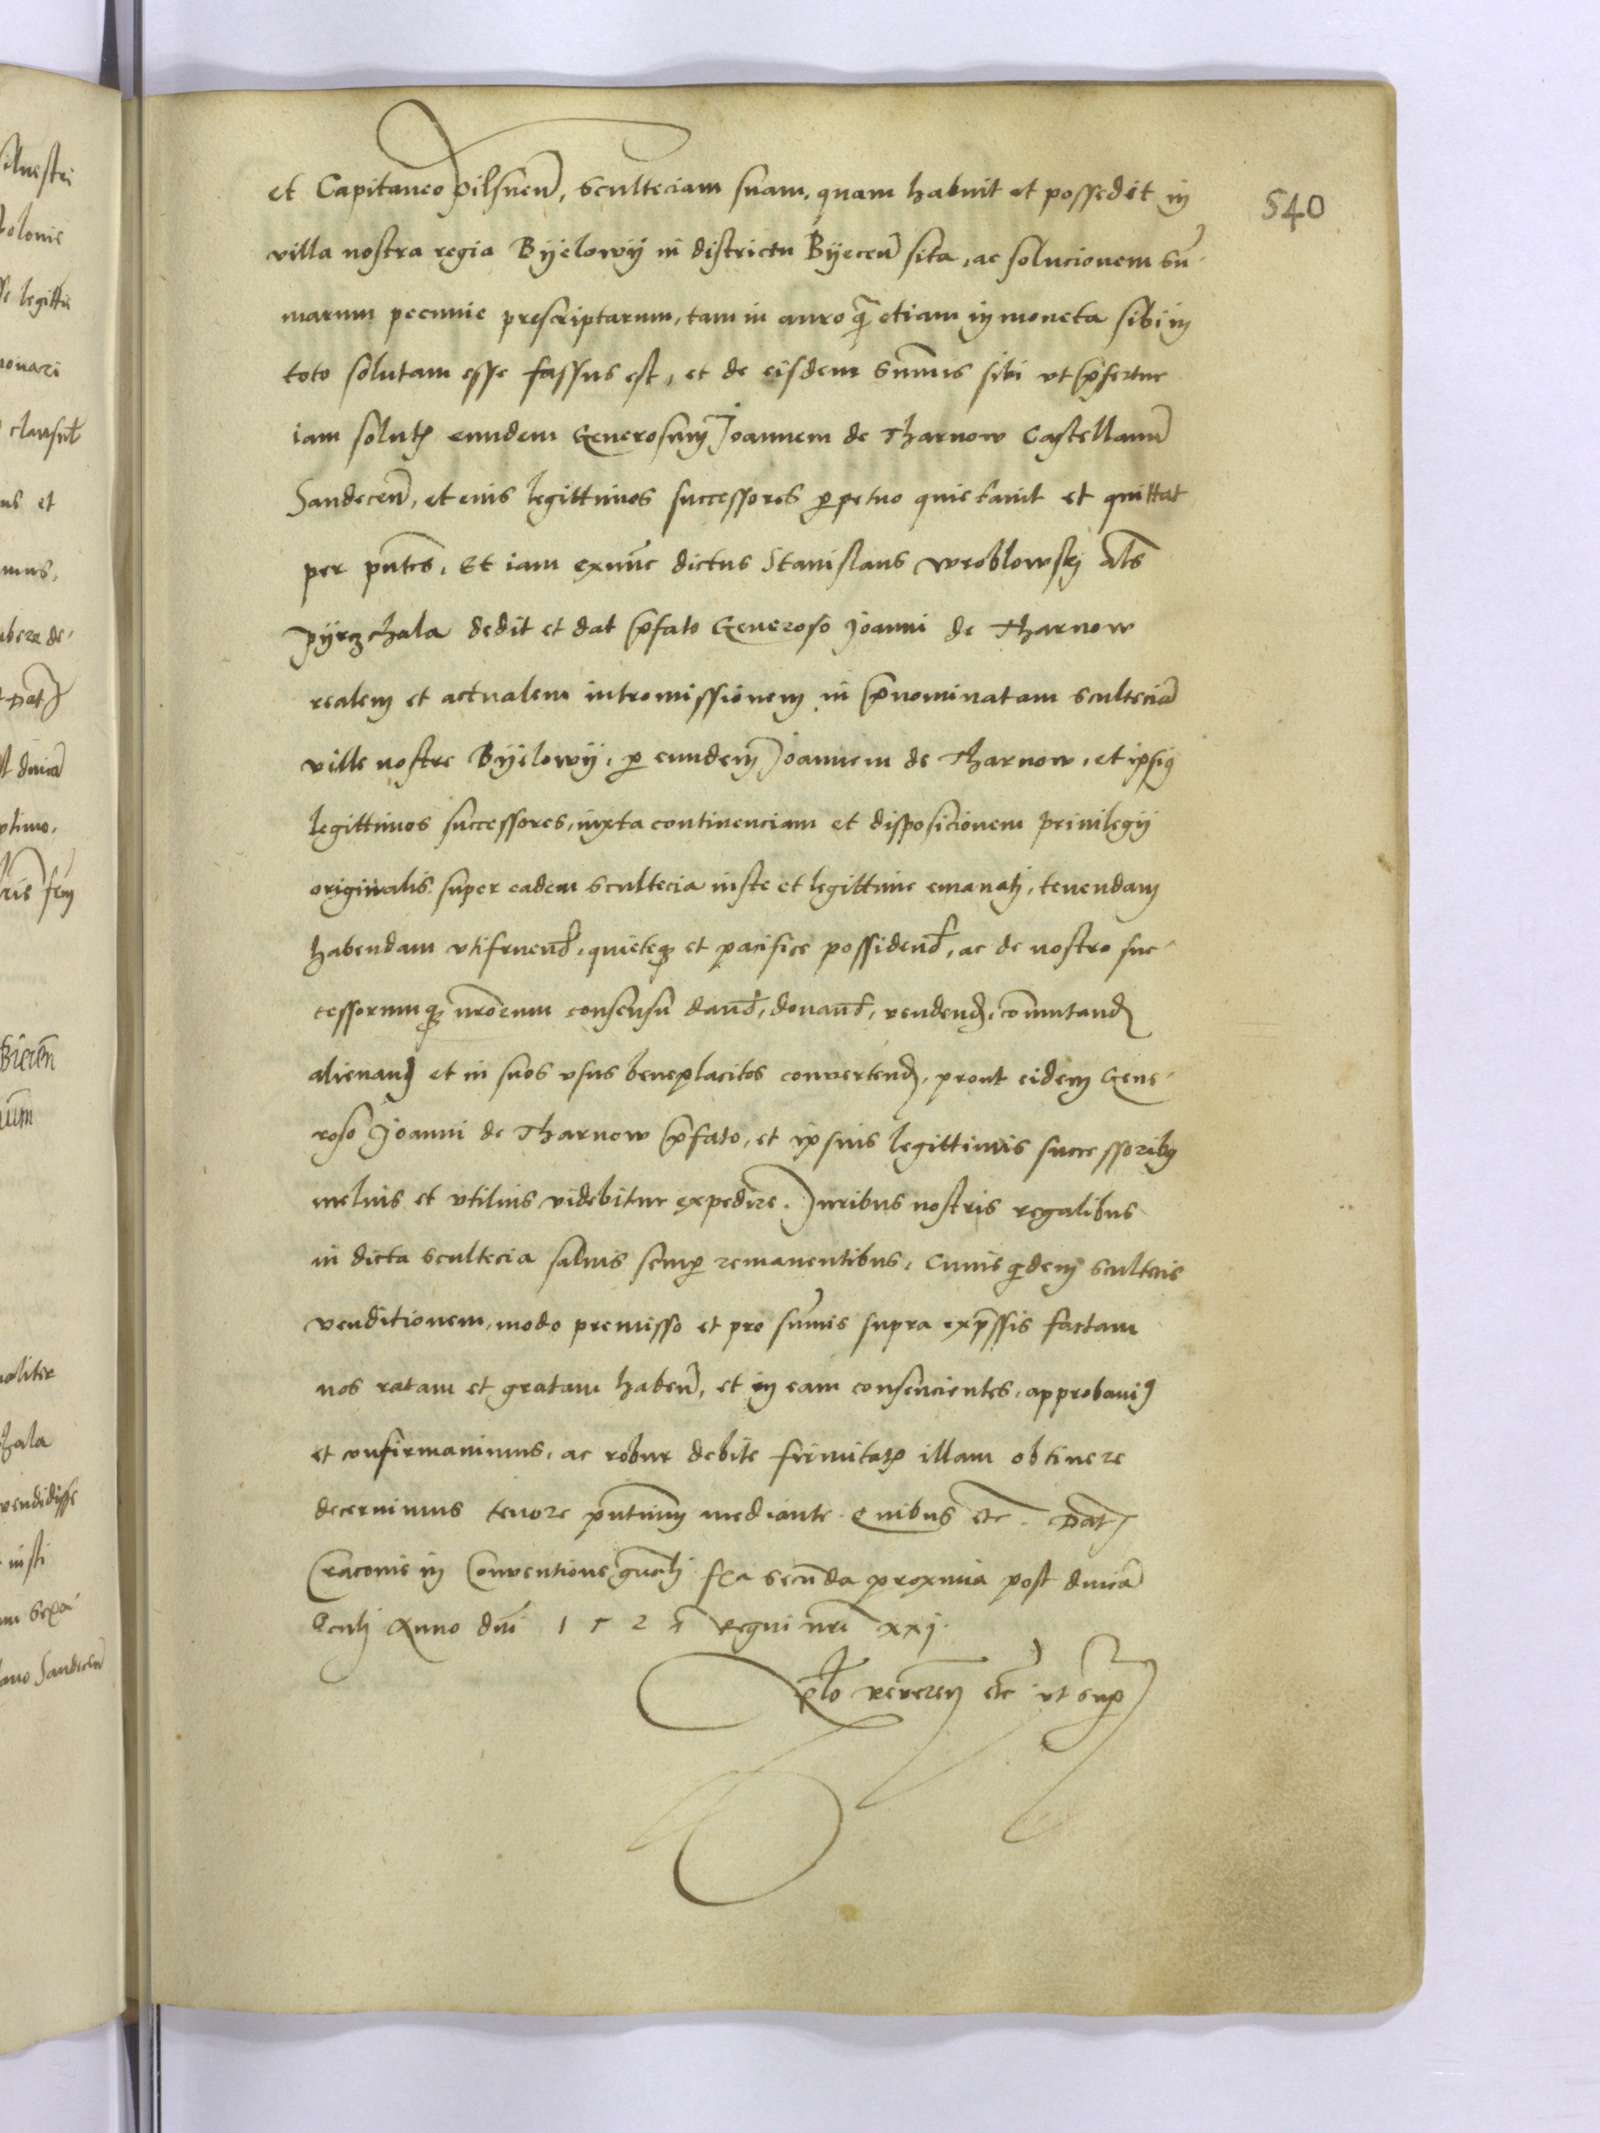 540
et Capitaneo pilsnen̄, sculteciam suam, quam habuit et possedit in
villa nostra regia Byelowy in districtu Byecen̄ sita, ac solucionem su͞-
marum pecunie prescriptarum, tam in auro q̄ etiam in moneta sibi in
toto solutam esse fassus est, et de eisdem summis sibi ut p̄fertur
iam solut͛ eundem Generosum Joannem de Tharnow Castellanu͞
Sandecen̄, et eius legittimos successores ꝑpetuo quietauit et quittat
per pn̄tes, Et iam exnu͞c dictus Stanislaus Wroblowskj als͞
pyrzchala dedit et dat p̄fato Generoso Joanni de Tharnow
realem et actualem intromissionem in p̄nominatam scultecia͞
ville nostre Byelowy, ꝑ eundem Joannem de Tharnow, et ipsiꝰ
legittimos successores, iuxta continenciam et disposicionem priuilegij
originalis super eadem scultecia iuste et legittime emanatj, tenendam
habendam utifruend̄, quieteqꝫ et pacifice possidend̄, ac de nostro suc-
cessorumqꝫ nr̄orum consensu dand̄, donand̄, vendend̄, co͞mutand̄
alienand̄ et in suos usus beneplacitos convertend̄, prout eidem Gene-
roso Joanni de Tharnow p̄fato, et ipsius legittimis successoribꝰ
melius et utilius videbitur expedire. Juribus nostris regalibus
in dicta scultecia saluis semꝑ remanentibus, Cuius qⁱdem scultecie
venditionem, modo premisso et pro su͞mis supra exp̄ssis factam
nos ratam et gratam haben̄, et in eam consencientes, approbauiꝰ
et confirmauimus, ac robur debite firmitat͛ illam obtinere
decernimus tenore pn̄tium mediante. Quibus etc̄. Dat͛
Cracouie in Conventione gn̄alj fer̄ secu͞da proxima post dn̄ica͞
Oculj Anno dn̄i 1527 Regni nr̄i xxj.
R̄elo reveren̄ etc̄ ut sup͛